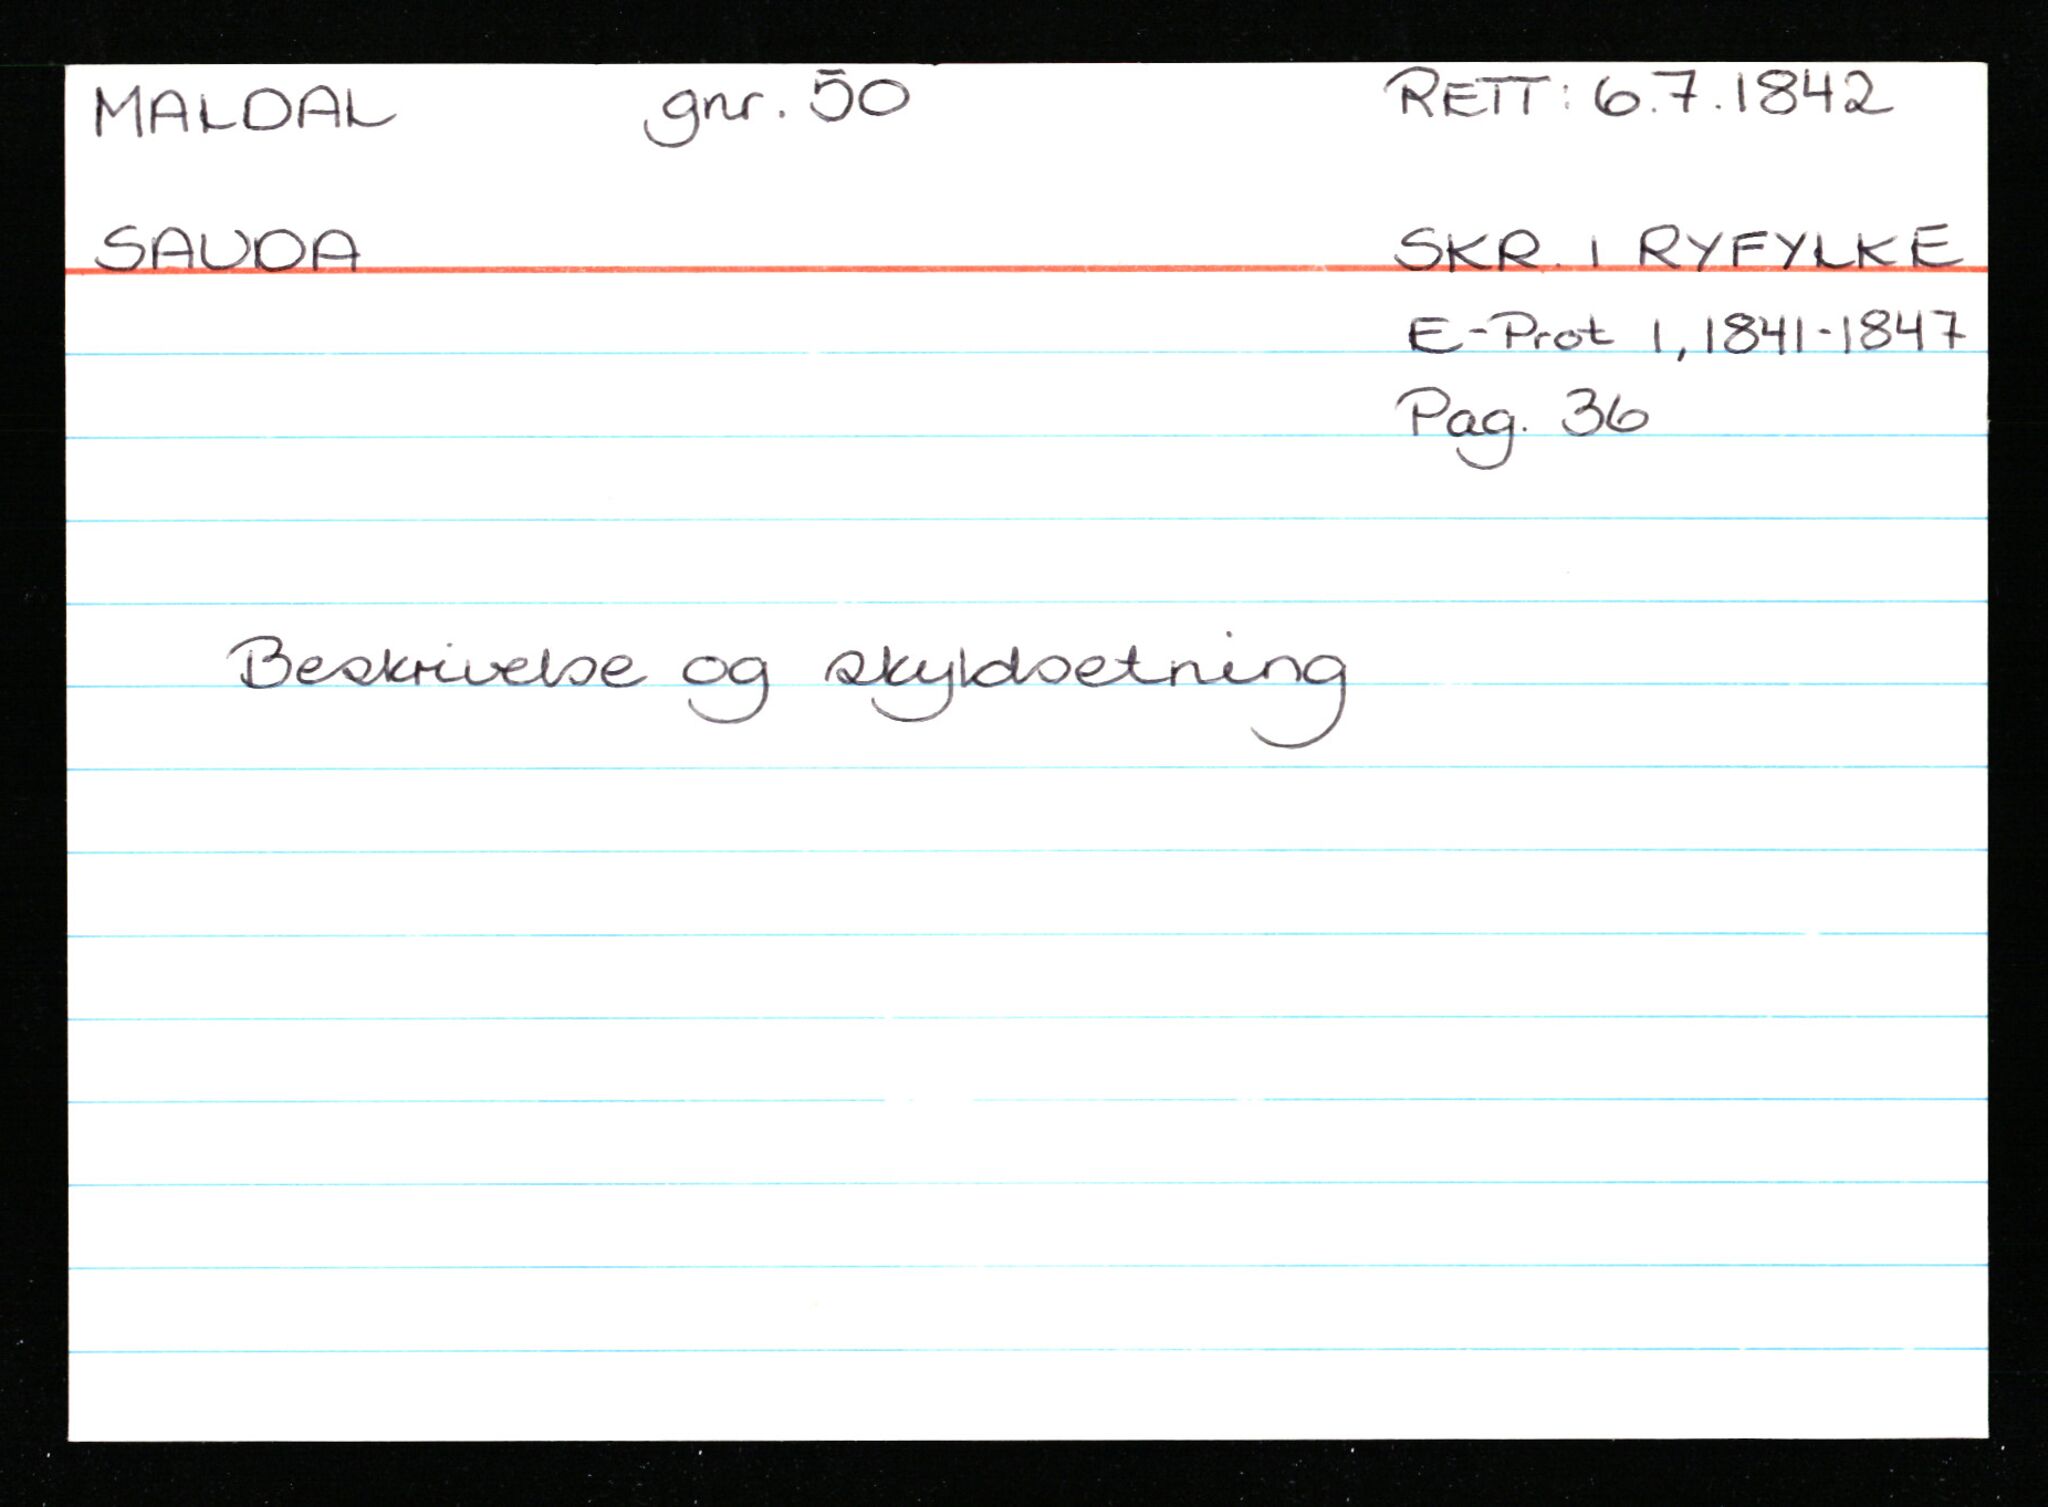 MALDAL gnr. 50 RETT: 6.7.1842
SAUDA SKR. I RYFYLKE
E-Prot 1, 1841-1847
Pag. 36
Beskrivelse og skyldsetning